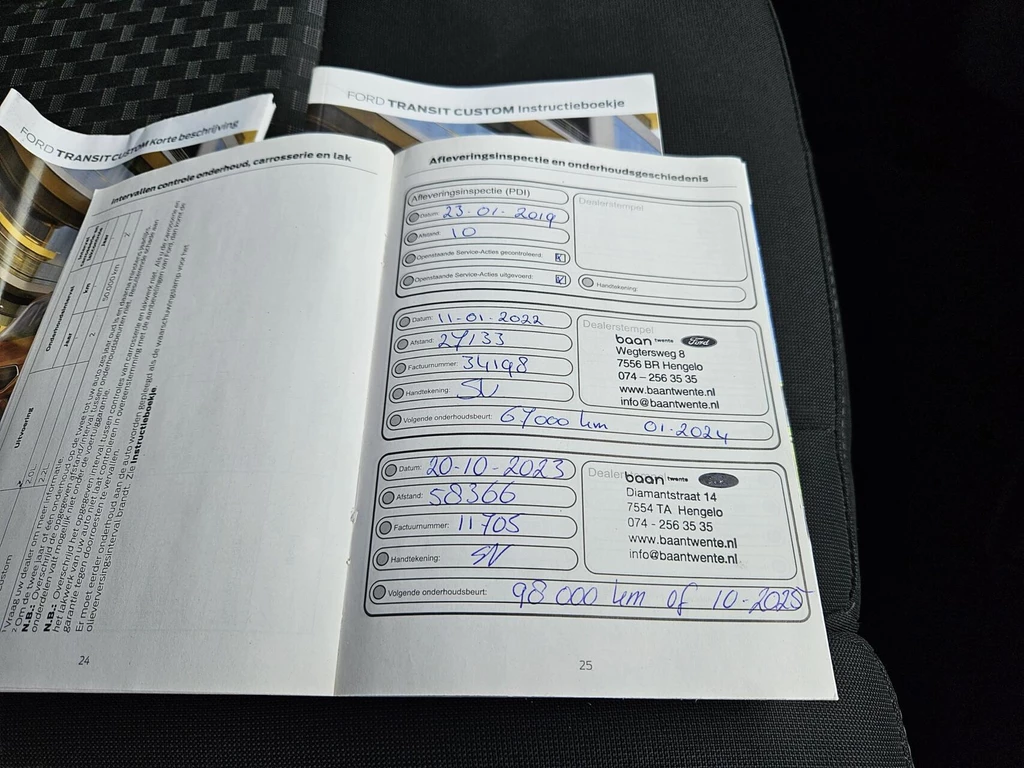 FORD TRANSIT CUSTOM Korte beschrijving
FORD TRANSIT CUSTOM Instructieboekje
Intervallen controle onderhoud, carrosserie en lak
Uitvoering
Onderhoudsinterval
jaar
km
2.0L
2.2L
2
50.000 km
2
1 Vraag uw dealer om meer informatie.
N.B.: Overschrijd de opgegeven afstand/interval tussen onderhoudsbeurten niet.
Er moet eerder onderhoud aan de auto worden gepleegd als de waarschuwingslamp voor het
olieverversingsinterval brandt. Zie Instructieboekje.
24
Afleveringsinspectie en onderhoudsgeschiedenis
Afleveringsinspectie (PDI)
Datum: 23-01-2019
Afstand: 10
Openstaande Service-Acties gecontroleerd:
Openstaande Service-Acties uitgevoerd:
Dealerstempel
Handtekening:
Datum: 11-01-2022
Afstand: 27133
Factuurnummer: 34198
Handtekening: SN
Volgende onderhoudsbeurt: 67000 km 01-2024
Dealerstempel
baan twente Ford
Wegtersweg 8
7556 BR Hengelo
074 – 256 35 35
www.baantwente.nl
info@baantwente.nl
Datum: 20-10-2023
Afstand: 58366
Factuurnummer: 11705
Handtekening: SN
Volgende onderhoudsbeurt: 98 000 km of 10-2025
Dealerstempel
baan twente
Diamantstraat 14
7554 TA Hengelo
074 - 256 35 35
www.baantwente.nl
info@baantwente.nl
25